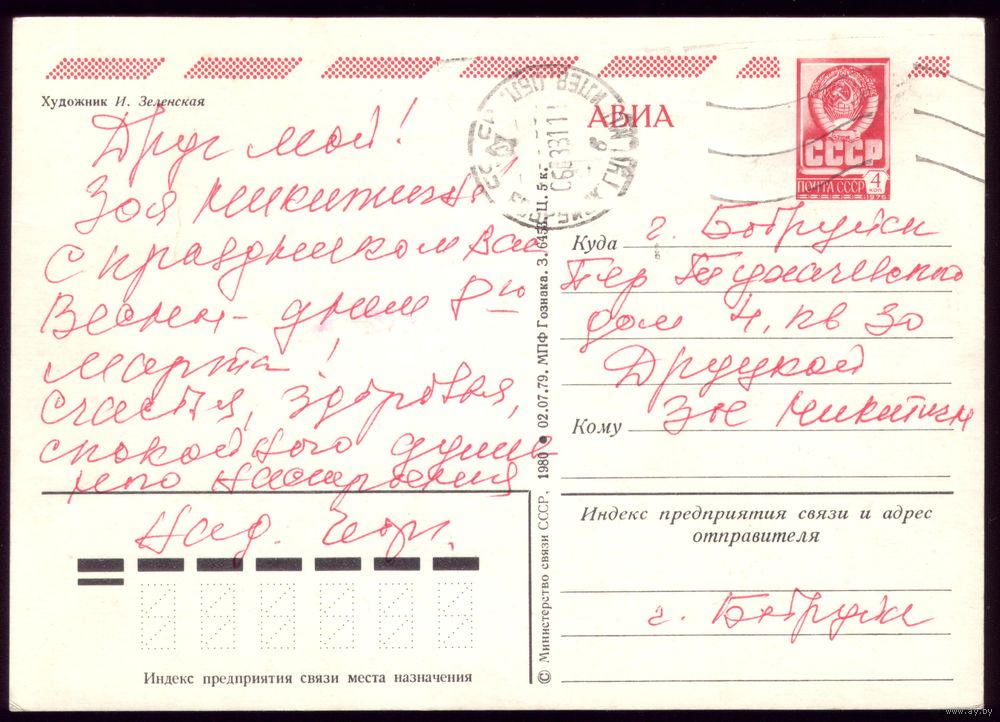 Художник И. Зеленская
АВИА
СССР
ПОЧТА СССР
4 коп
1976
Друг мой!
Зоя Никитична
С праздником Вас
Весны - днем 8-го
Марта!
Счастья, здоровья,
спокойного душев
ного настроения
Над.
Куда г. Бобруйск
Пер Тухачевского
дом 4, кв 30
Друцкой
Кому Зое Никитичн
Индекс предприятия связи и адрес
отправителя
г. Бобруйск
Индекс предприятия связи места назначения
© Министерство связи СССР, 1980 • 02.07.79. МПФ Гознака. З. 6453. Ц. 5 к.
www.ay.by